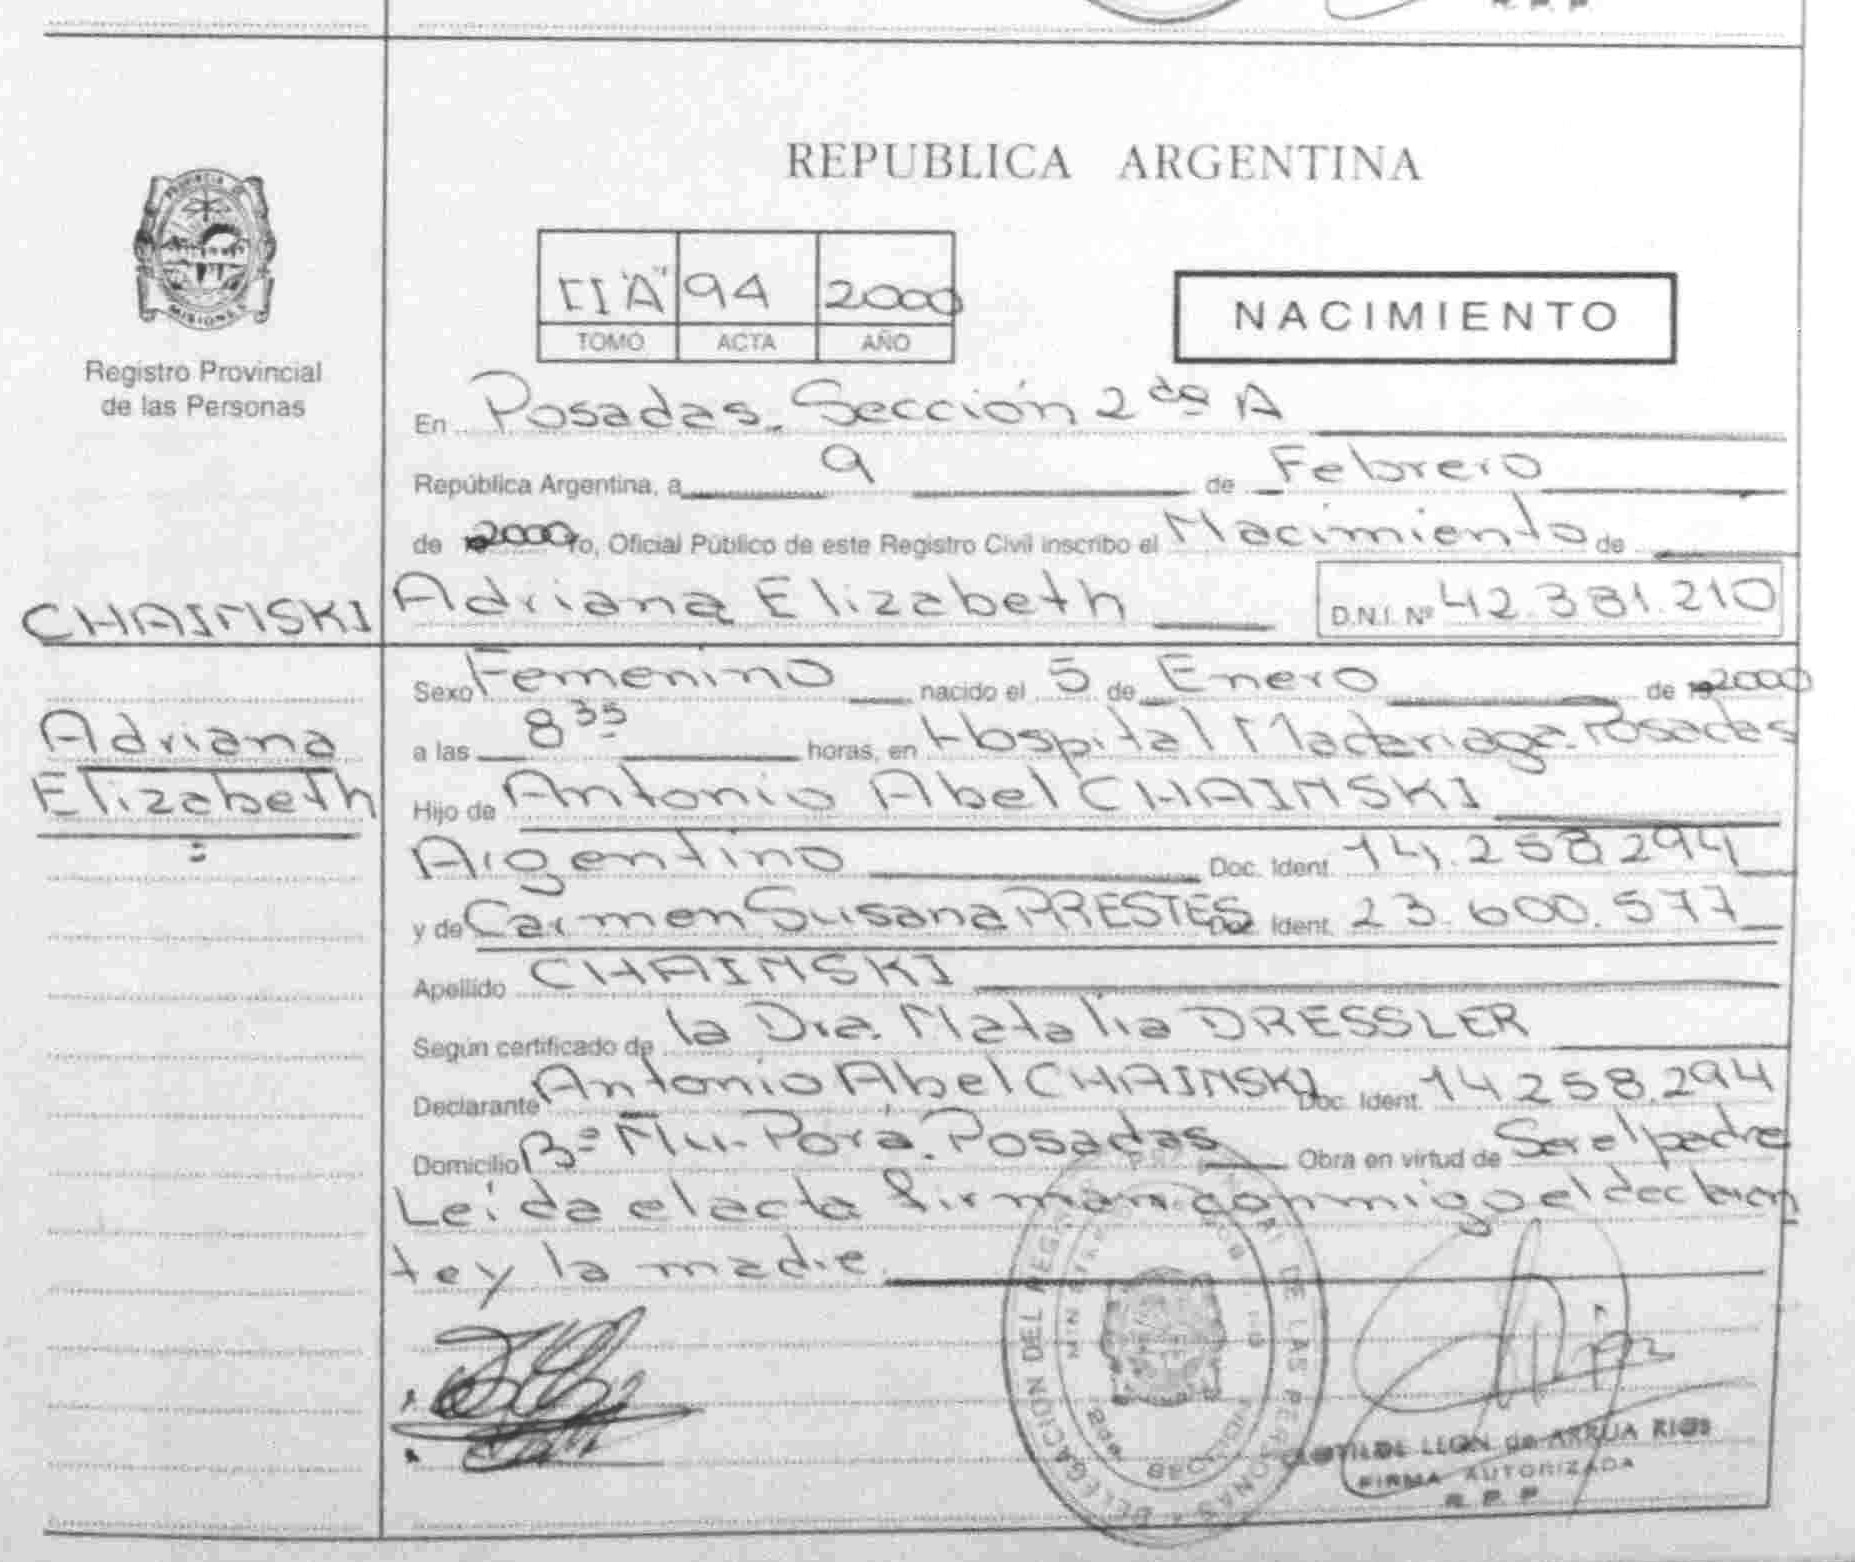 R. P. P.
REPUBLICA ARGENTINA
PROVINCIA DE
MISIONES
Registro Provincial
de las Personas
II "A" 94 2000
TOMO ACTA AÑO
NACIMIENTO
En Posadas. Sección 2da A
República Argentina, a 9 de Febrero
de 2000 yo, Oficial Público de este Registro Civil inscribo el Nacimiento de
CHAINSKI Adriana Elizabeth D.N.I. Nº 42.381.210
Sexo Femenino nacido el 5 de Enero de 2000
Adriana
Elizabeth
a las 8 35 horas, en Hospital Madariaga. Posadas
Hijo de Antonio Abel CHAINSKI
Argentino Doc. Ident. 14.258.294
y de Carmen Susana PRESTES Doc. Ident. 23.600.577
Apellido CHAINSKI
Según certificado de la Dra. Natalia DRESSLER
Declarante Antonio Abel CHAINSKI Doc. Ident. 14.258.294
Domicilio Bº Ñu-Porá. Posadas Obra en virtud de Ser el padre
Leída el acta firman conmigo el declaran
te y la madre.
DELEGACIÓN DEL REGISTRO DE LAS PERSONAS
CLOTILDE LEON de ARRUA RIOS
FIRMA AUTORIZADA
R. P. P.